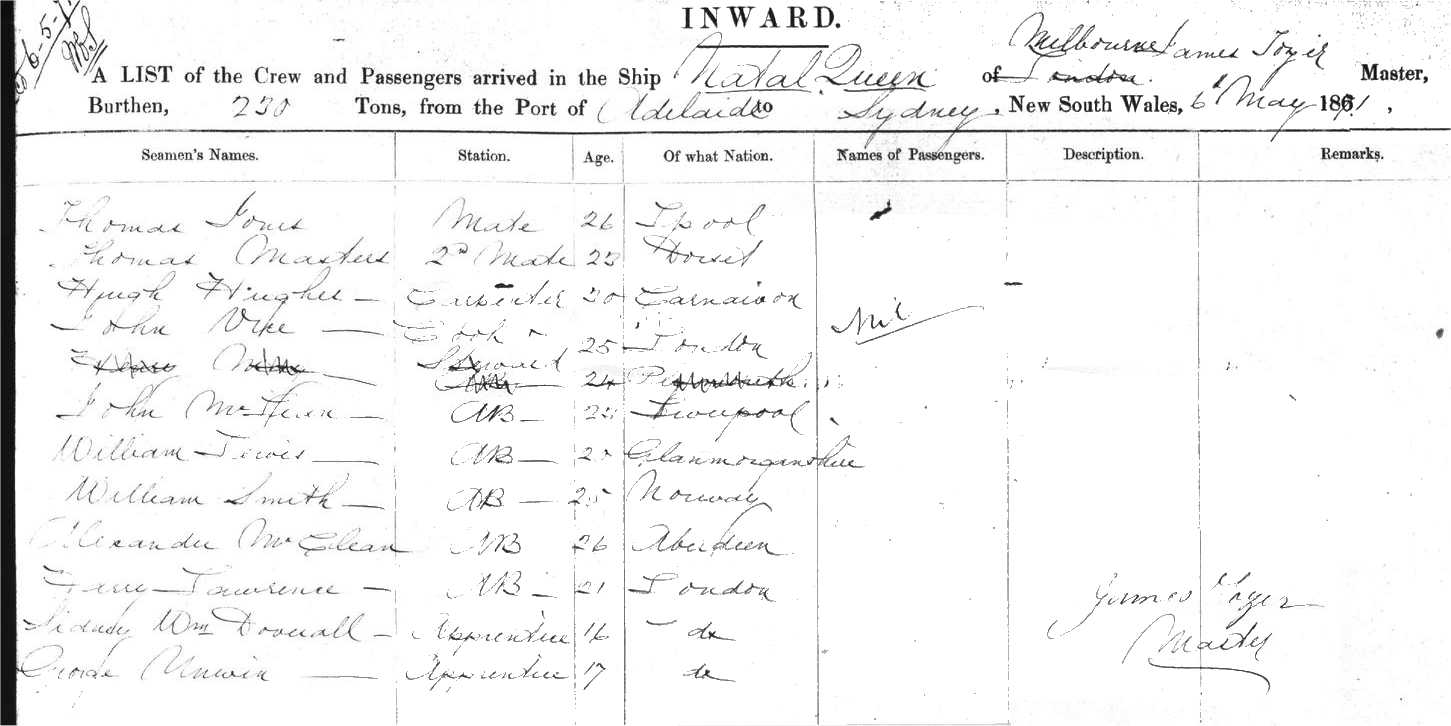 INWARD.
6-5-7
Melbourne James Tozer
A LIST of the Crew and Passengers arrived in the Ship Natal Queen of London. Master,
Burthen, 230 Tons, from the Port of Adelaide to Sydney, New South Wales, 6th May 1871,
Seamen's Names. Station. Age. Of what Nation. Names of Passengers. Description. Remarks.
Thomas Jones Mate 26 Lpool
Thomas Masters 2nd Mate 23 Dorset
Hugh Hughes Carpenter 30 Carnarvon
John Cook & London Nil
Steward 25
24
John AB Liverpool
William Lewis AB Glanmorganshire
William Smith AB 25 Norway
Alexander McClean AB 26 Aberdeen
Harry Lawrence AB 21 London
Sidney Wm Apprentice 16 do James Tozer
George Unwin Apprentice 17 do Master